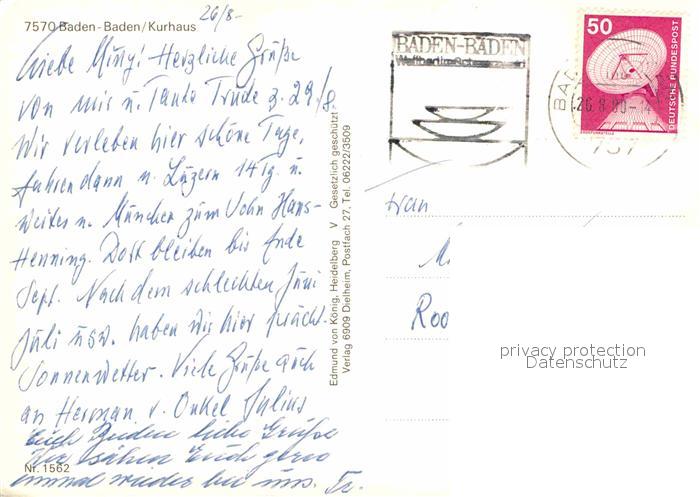 26/8-
7570 Baden-Baden/Kurhaus
Liebe Muny! Herzliche Grüße
von mir u. Tante Trude z. 29/8.
Wir verleben hier schöne Tage,
fahren dann n. Luzern 14 Tg. u.
weiter n. München zum Sohn Hans-
Henning. Dort bleiben bis Ende
Sept. Nach dem schlechten Juni
Juli usw. haben wir hier prächt.
Sonnenwetter. Viele Grüße auch
an Herman v. Onkel Julius
Euch Beiden liebe Grüße
Wir sähen Euch gern
einmal wieder bei uns. Tr.
Nr. 1562
Edmund von König, Heidelberg V Gesetzlich geschützt
Verlag 6909 Dielheim, Postfach 27, Tel. 06222/3509
BADEN-BADEN
50
DEUTSCHE BUNDESPOST
BAD
26.8.80-14
757
Frau
M
Roo
privacy protection
Datenschutz